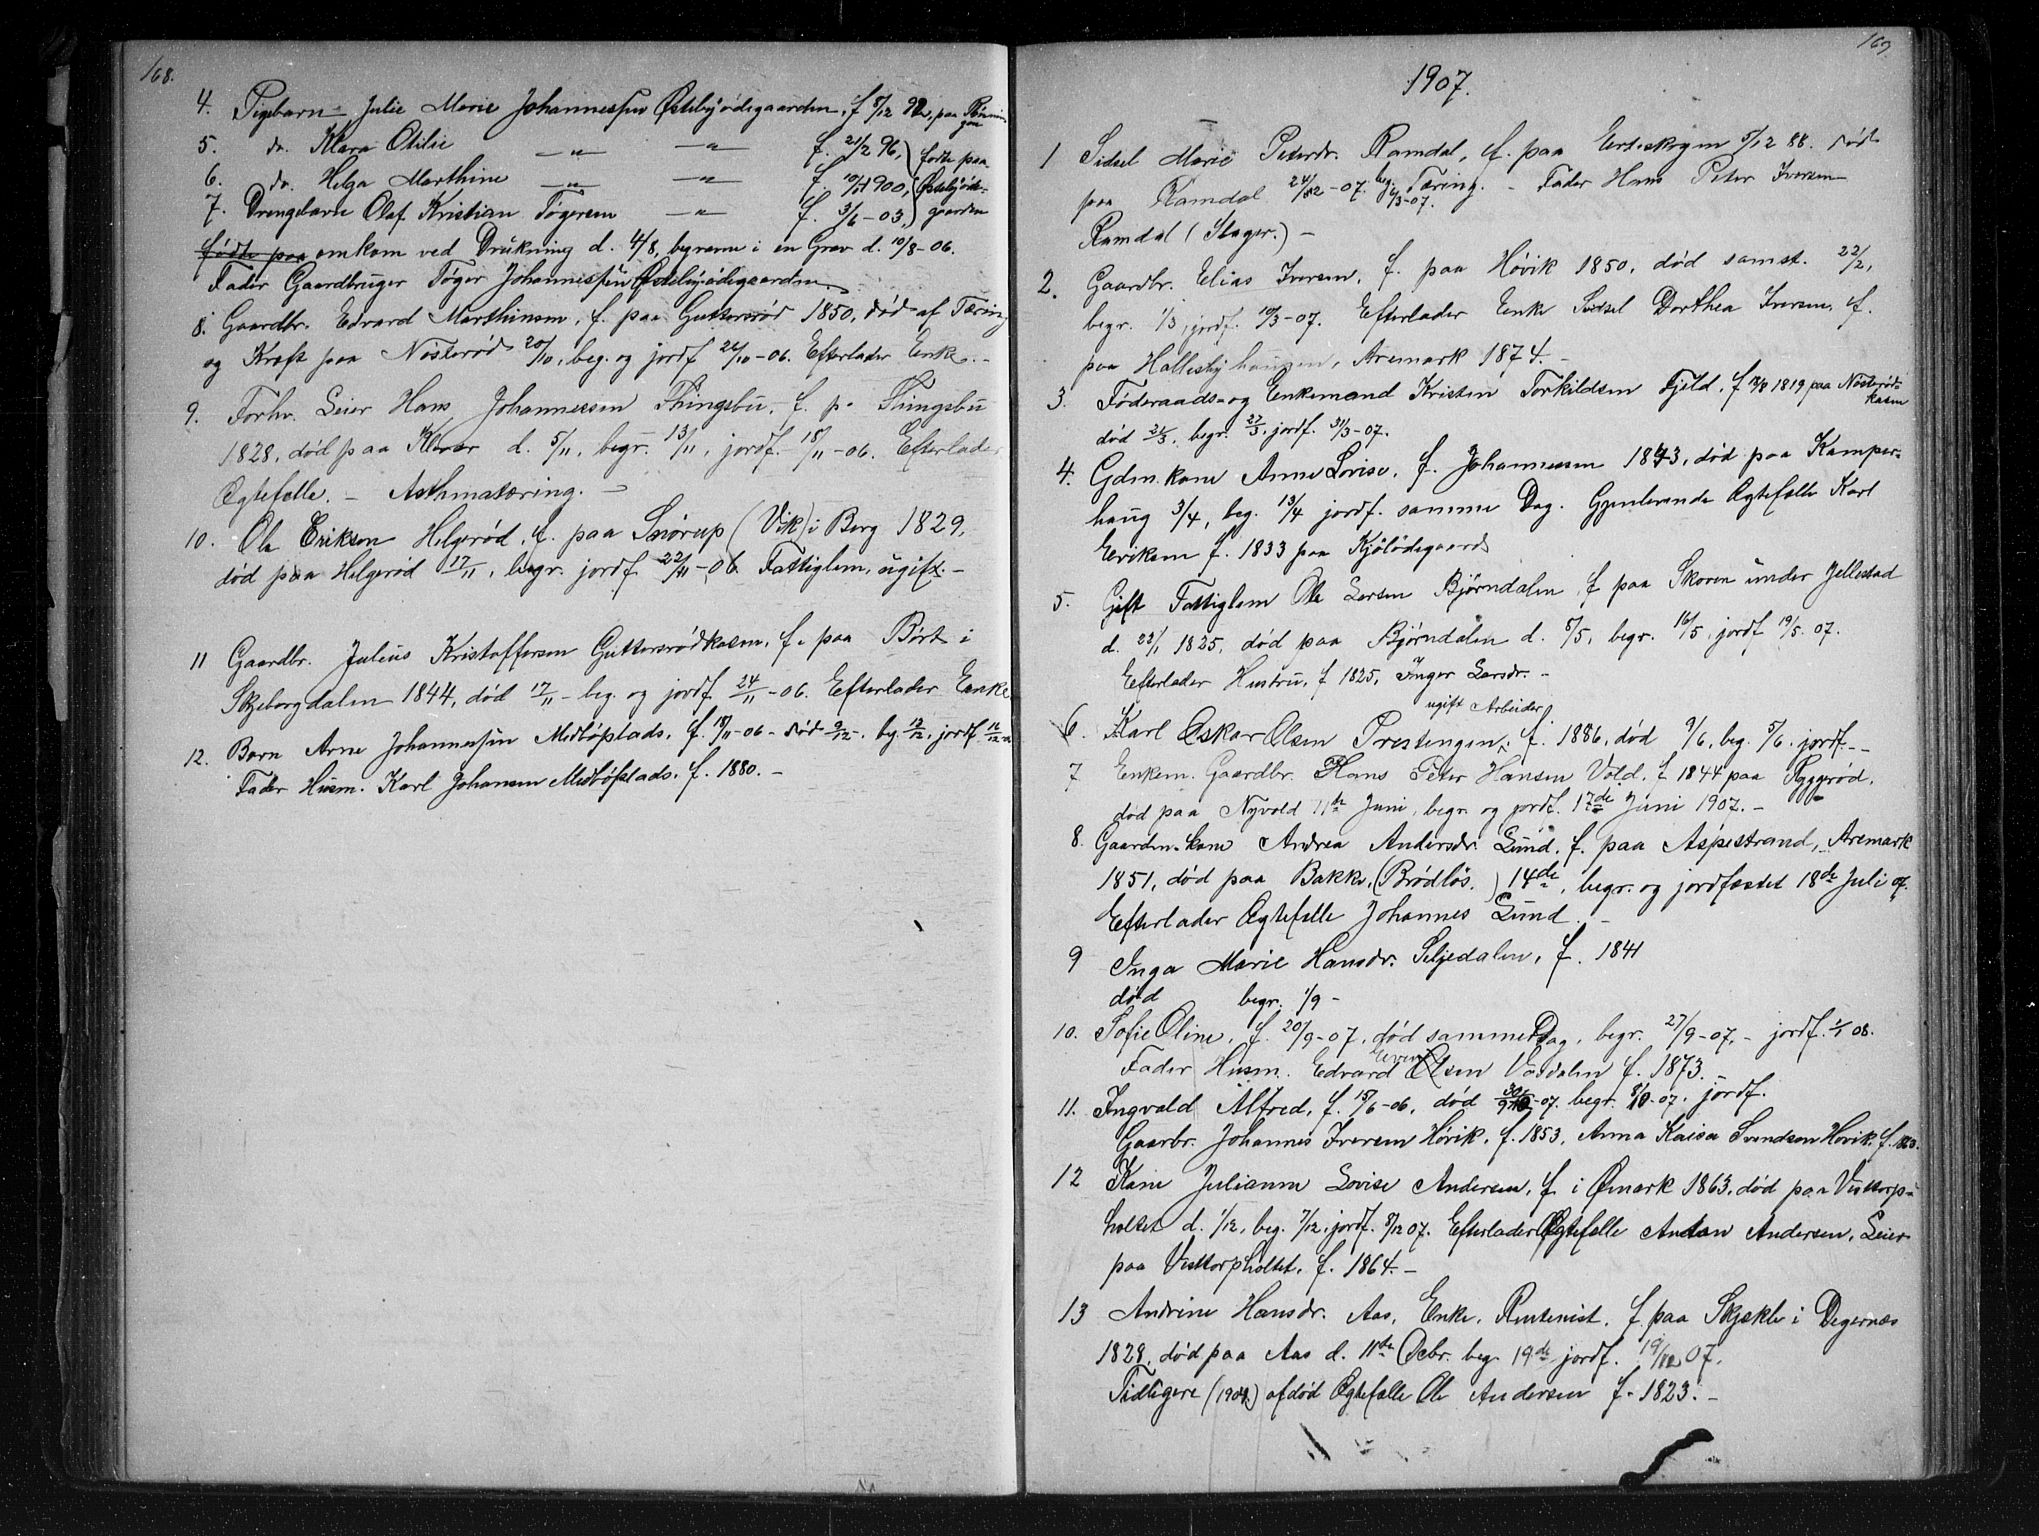 168.
4. Pigebarn Julie Marie Johannessen Østebyødegaarden, f. 8/12 92, paa
5. do. Klara Otilie —„— —„— f. 21/2 96, fødte paa
6. do. Helga Marthine —„— —„— f. 900, Østebyøde-
7. Drengebarn Olaf Kristian Tøgersen —„— f. 3/6 - 03, gaarden
fødte paa omkom ved Drukning d. 4/8, begravne i en Grav d. 10/8 - 06.
Fader Gaardbruger Tøger Johannessen Østebyødegaarden
8. Gaardbr. Edvard Marthinsen, f. paa Guttersrød 1850, død af Tæring
og Kræft paa Nösterød 20/10, beg. og jordf 26/10 - 06. Efterlader Enke. -
9. Forhv. Leier Hans Johannessen Thingsbu, f. p. Thingsbu
1828, død paa d. 5/11, begr. 13/11, jordf. 18/11 - 06. Efterlader
Ægtefælle. - Asthmatæring. -
10. Ole Erikson Helgerød, f. paa Snorup (Vik) i Berg 1829,
død paa Helgerød 17/11, begr. jordf. 22/11 - 06. Fattiglem, ugift. -
11 Gaardbr. Julius Kristoffersen Guttersrødkasen, f. paa Börte i
Skjebergdalen 1844, død 17/11 - beg. og jordf 24/11 - 06. Efterlader Enke
12. Barn Arne Johannessen Midböplads, f. 18/11 - 06 - død 9/12 -, beg. 12/12, jordf.
Fader Husm. Karl Johansen Midböplads. f. 1880. -
169
1907.
1 Sidsel Marie Petersdr. Ramdal, f. paa Erteskogen 5/12 88. død
paa Ramdal - 07. beg. 6/3 - 07. Tæring. - Fader Hans Peter Iversen
Ramdal (Stager.) -
2. Gaardbr. Elias Iversen, f. paa Høvik 1850, død samst. 22/2,
begr. 1/3, jordf. 10/3 - 07. Efterlader Enke Sidsel Dorthea Iversen, f.
paa Hallesbyhaugen, Aremark 1874. -
3. Føderaads- og Enkemand Kristen Torkildsen Fjeld, f 1819 paa Nösterød-
kasen
død 21/3, begr. 27/3, jordf. 31/3 - 07.
4. Gdm.kone Anne Lovise, f. Johannessen 1843, død paa Kamper-
haug 3/4, beg. 13/4 jordf. samme Dag. Gjenlevende Ægtefælle Karl
Eriksen f. 1833 paa Kjölödegaard
5. Gift Fattiglem Ole Larsen Bjørndalen f. paa Skoven under Jellestad
d. 22/1 1825, død paa Bjørndalen d. 5/5, begr. 16/5, jordf 19/5. 07.
Efterlader Hustru, f 1825, Inger Larsdr. -
ugift Arbeider
6. Karl Oskar Olsen Prestengen, f. 1886, død 9/6, beg. 5/6. jordf. - -
7 Enkem. Gaardbr. Hans Peter Hansen Vold, f 1844 paa Ryggerød,
død paa Nyvold 11te Juni, begr. og jordf. 17de Juni 1907. -
8. Gaardm.kone Andrea Andersdr. Lund, f. paa Aspestrand, Aremark
1851, død paa Bakke, (Brödlös.) 14de, begr. og jordfæstet 18de Juli 07.
Efterlader Ægtefælle Johannes Lund. -
9 Inga Marie Hansdr. Seljedalen, f. 1841
død begr. 1/9 -
10. Sofie Oline, f. 20/9 - 07, død samme Dag, begr. 27/9 - 07. - jordf. 1/1 08.
Fader Husm. Edvard Olsen Vasdalen f. 1873. -
11. Ingvald Alfred, f. 15/6 - 06, død - 07. begr. 8/10 - 07. jordf.
Gaarbr. Johannes Iversen Høvik, f. 1853, Anna Kaisa Svendsen Høvik. f.
12 Kone Julianne Lovise Andersen, f. i Ømark 1863, død paa Vistorp-
holtet d. 1/12, beg. 7/12, jordf. 8/12 07. Efterlader Ægtefælle Anton Andersen, Leier
paa Visttorpholtet, f. 1864. -
13 Andrine Hansdr. Aas, Enke, Rentenist, f. paa Skjekle i Degernæs
1828, død paa Aas d. 11te Decbr. beg. 19de jordf. 19/12 07.
Tidligere (1904) afdød Ægtefælle Ole Andersen f. 1823. -